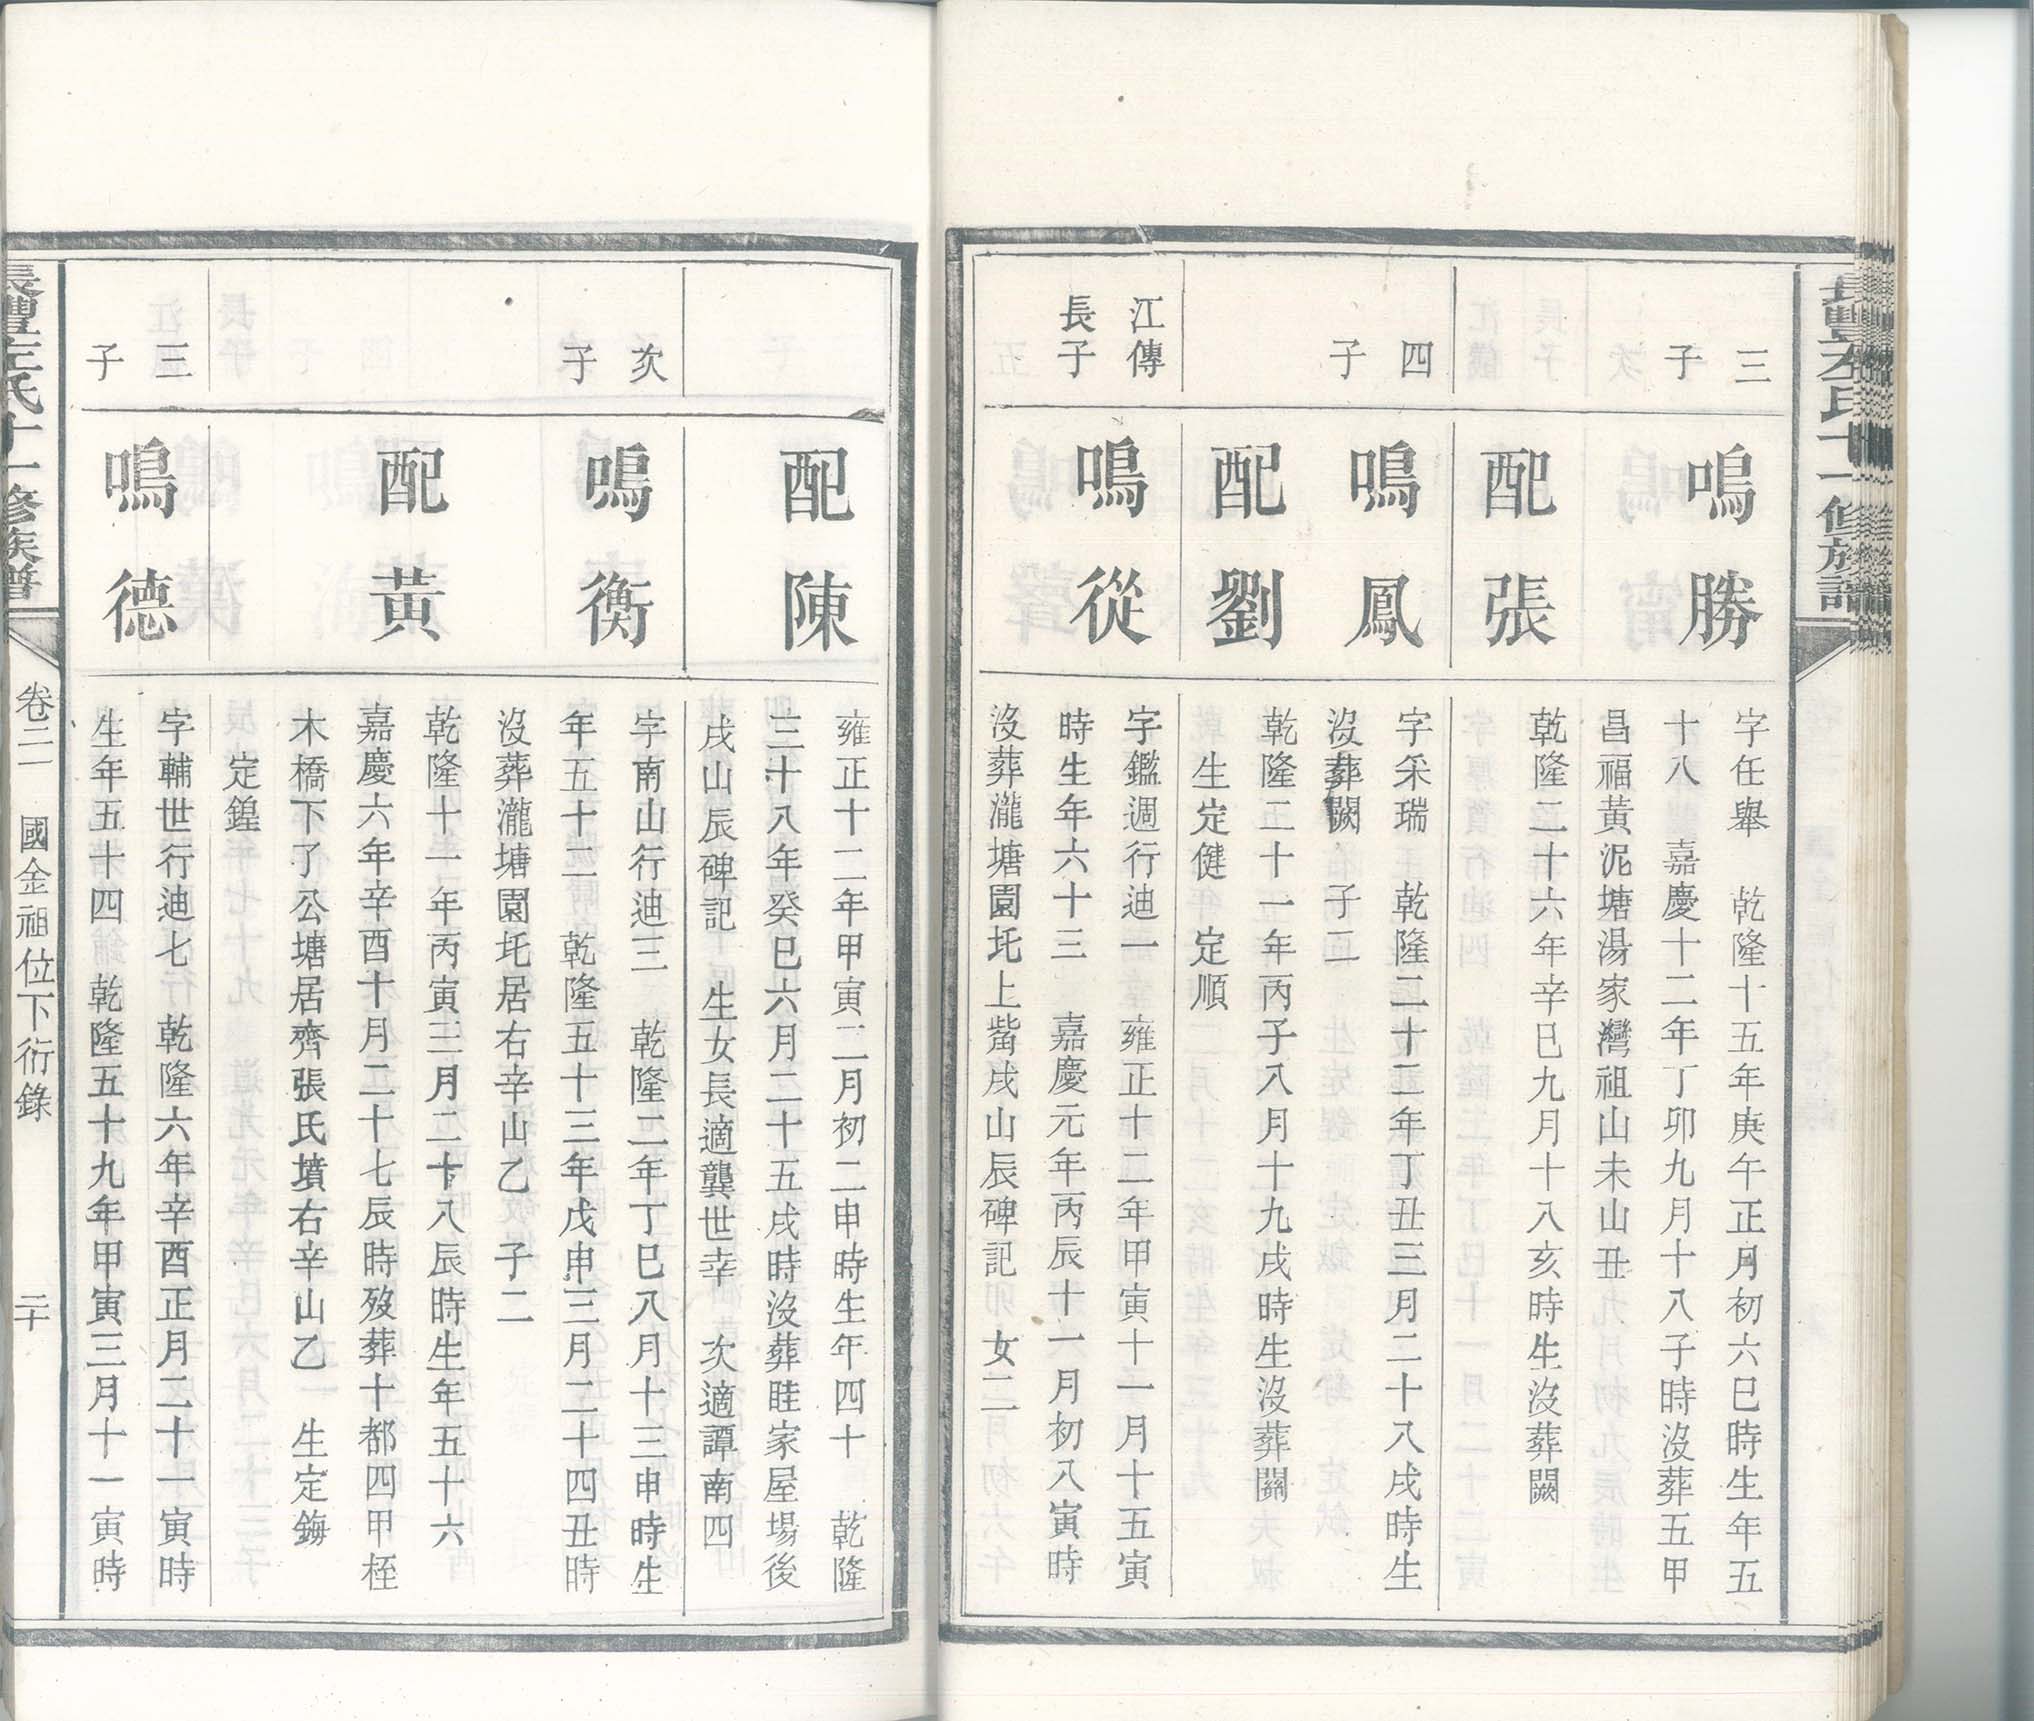 長豐左氏十一修族譜
三
子
鳴勝
字任舉　乾隆十五年庚午正月初六巳時生年五
十八　嘉慶十二年丁卯九月十八子時沒葬五甲
昌福黃泥塘湯家灣祖山未山丑
配張
乾隆二十六年辛巳九月十八亥時生沒葬闕
四
子
鳴鳳
字采瑞　乾隆二十二年丁丑三月二十八戌時生
沒葬闕　子二
配劉
乾隆二十一年丙子八月十九戌時生沒葬闕
生定健　定順
江傳
長子
鳴從
字鑑週行迪一　雍正十二年甲寅十一月十五寅
時生年六十三　嘉慶元年丙辰十一月初八寅時
沒葬瀧塘園圫上嵴戌山辰碑記　女二
配陳
雍正十二年甲寅二月初二申時生年四十　乾隆
三十八年癸巳六月二十五戌時沒葬畦家屋場後
戌山辰碑記　生女長適龔世幸　次適譚南四
次
子
鳴衡
字南山行迪三　乾隆二年丁巳八月十三申時生
年五十二　乾隆五十三年戊申三月二十四丑時
沒葬瀧塘園圫居右辛山乙　子二
配黃
乾隆十一年丙寅三月二十八辰時生年五十六
嘉慶六年辛酉十月二十七辰時歿葬十都四甲桎
木橋下了公塘居齊張氏墳右辛山乙　生定鋂
定鍠
三
子
鳴德
字輔世行迪七　乾隆六年辛酉正月二十一寅時
生年五十四　乾隆五十九年甲寅三月十一寅時
長豐左氏十一修族譜
卷二　國金祖位下衍錄　二十